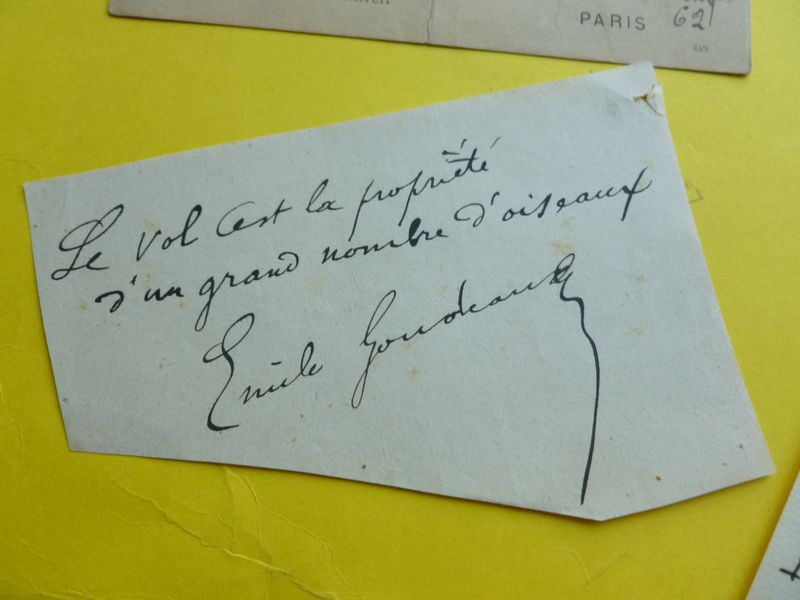 PARIS
62
649
Le vol c'est la propriété
d'un grand nombre d'oiseaux
Emile Goudeau